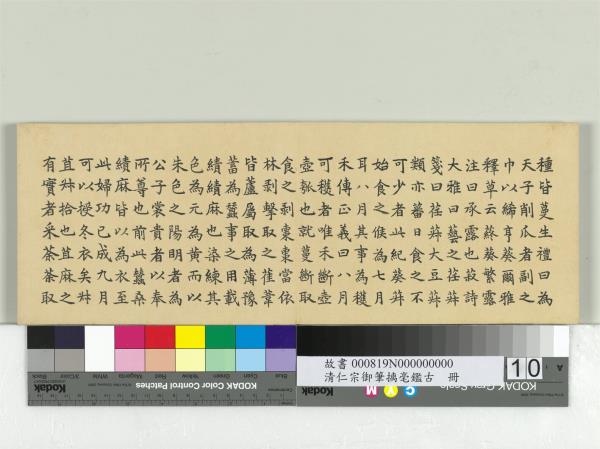 種皆蔓生禮曰為
天子削瓜者副之
巾以絺亨葵爾雅
釋草云蔠葵蘩露
注曰承露也菽詩
大雅曰藝之荏菽
箋曰荏菽大豆菽
類亦蕃日食之不
可少者此紀葵菽
始食之候為七月
耳八月其事為穫
禾傳正義曰八月
可穫者唯禾斷壺
壺瓠也就蔓斷取
食之剥棗棗當依
林剥擊取之萑葦
皆蘆屬取為薄豫
蓄為蠶事之用載
績績麻也染練其
色為元為黃而以
朱色之陽明者為
公子裳貴者以奉
所尊也前此蠶桑
績麻皆以為衣至
此婦功已成九月
可以授冬衣矣叔
苴叔拾也苴麻之
有實者采荼荼取
KODAK Color Control Patches
Kodak
Black
3/Color
White
Magenta
Red
Yellow
Green
Cyan
Blue
故書 000819N000000000
清仁宗御筆摛毫鑑古 冊
10
A
KODAK Gray Scale
Kodak
C Y M